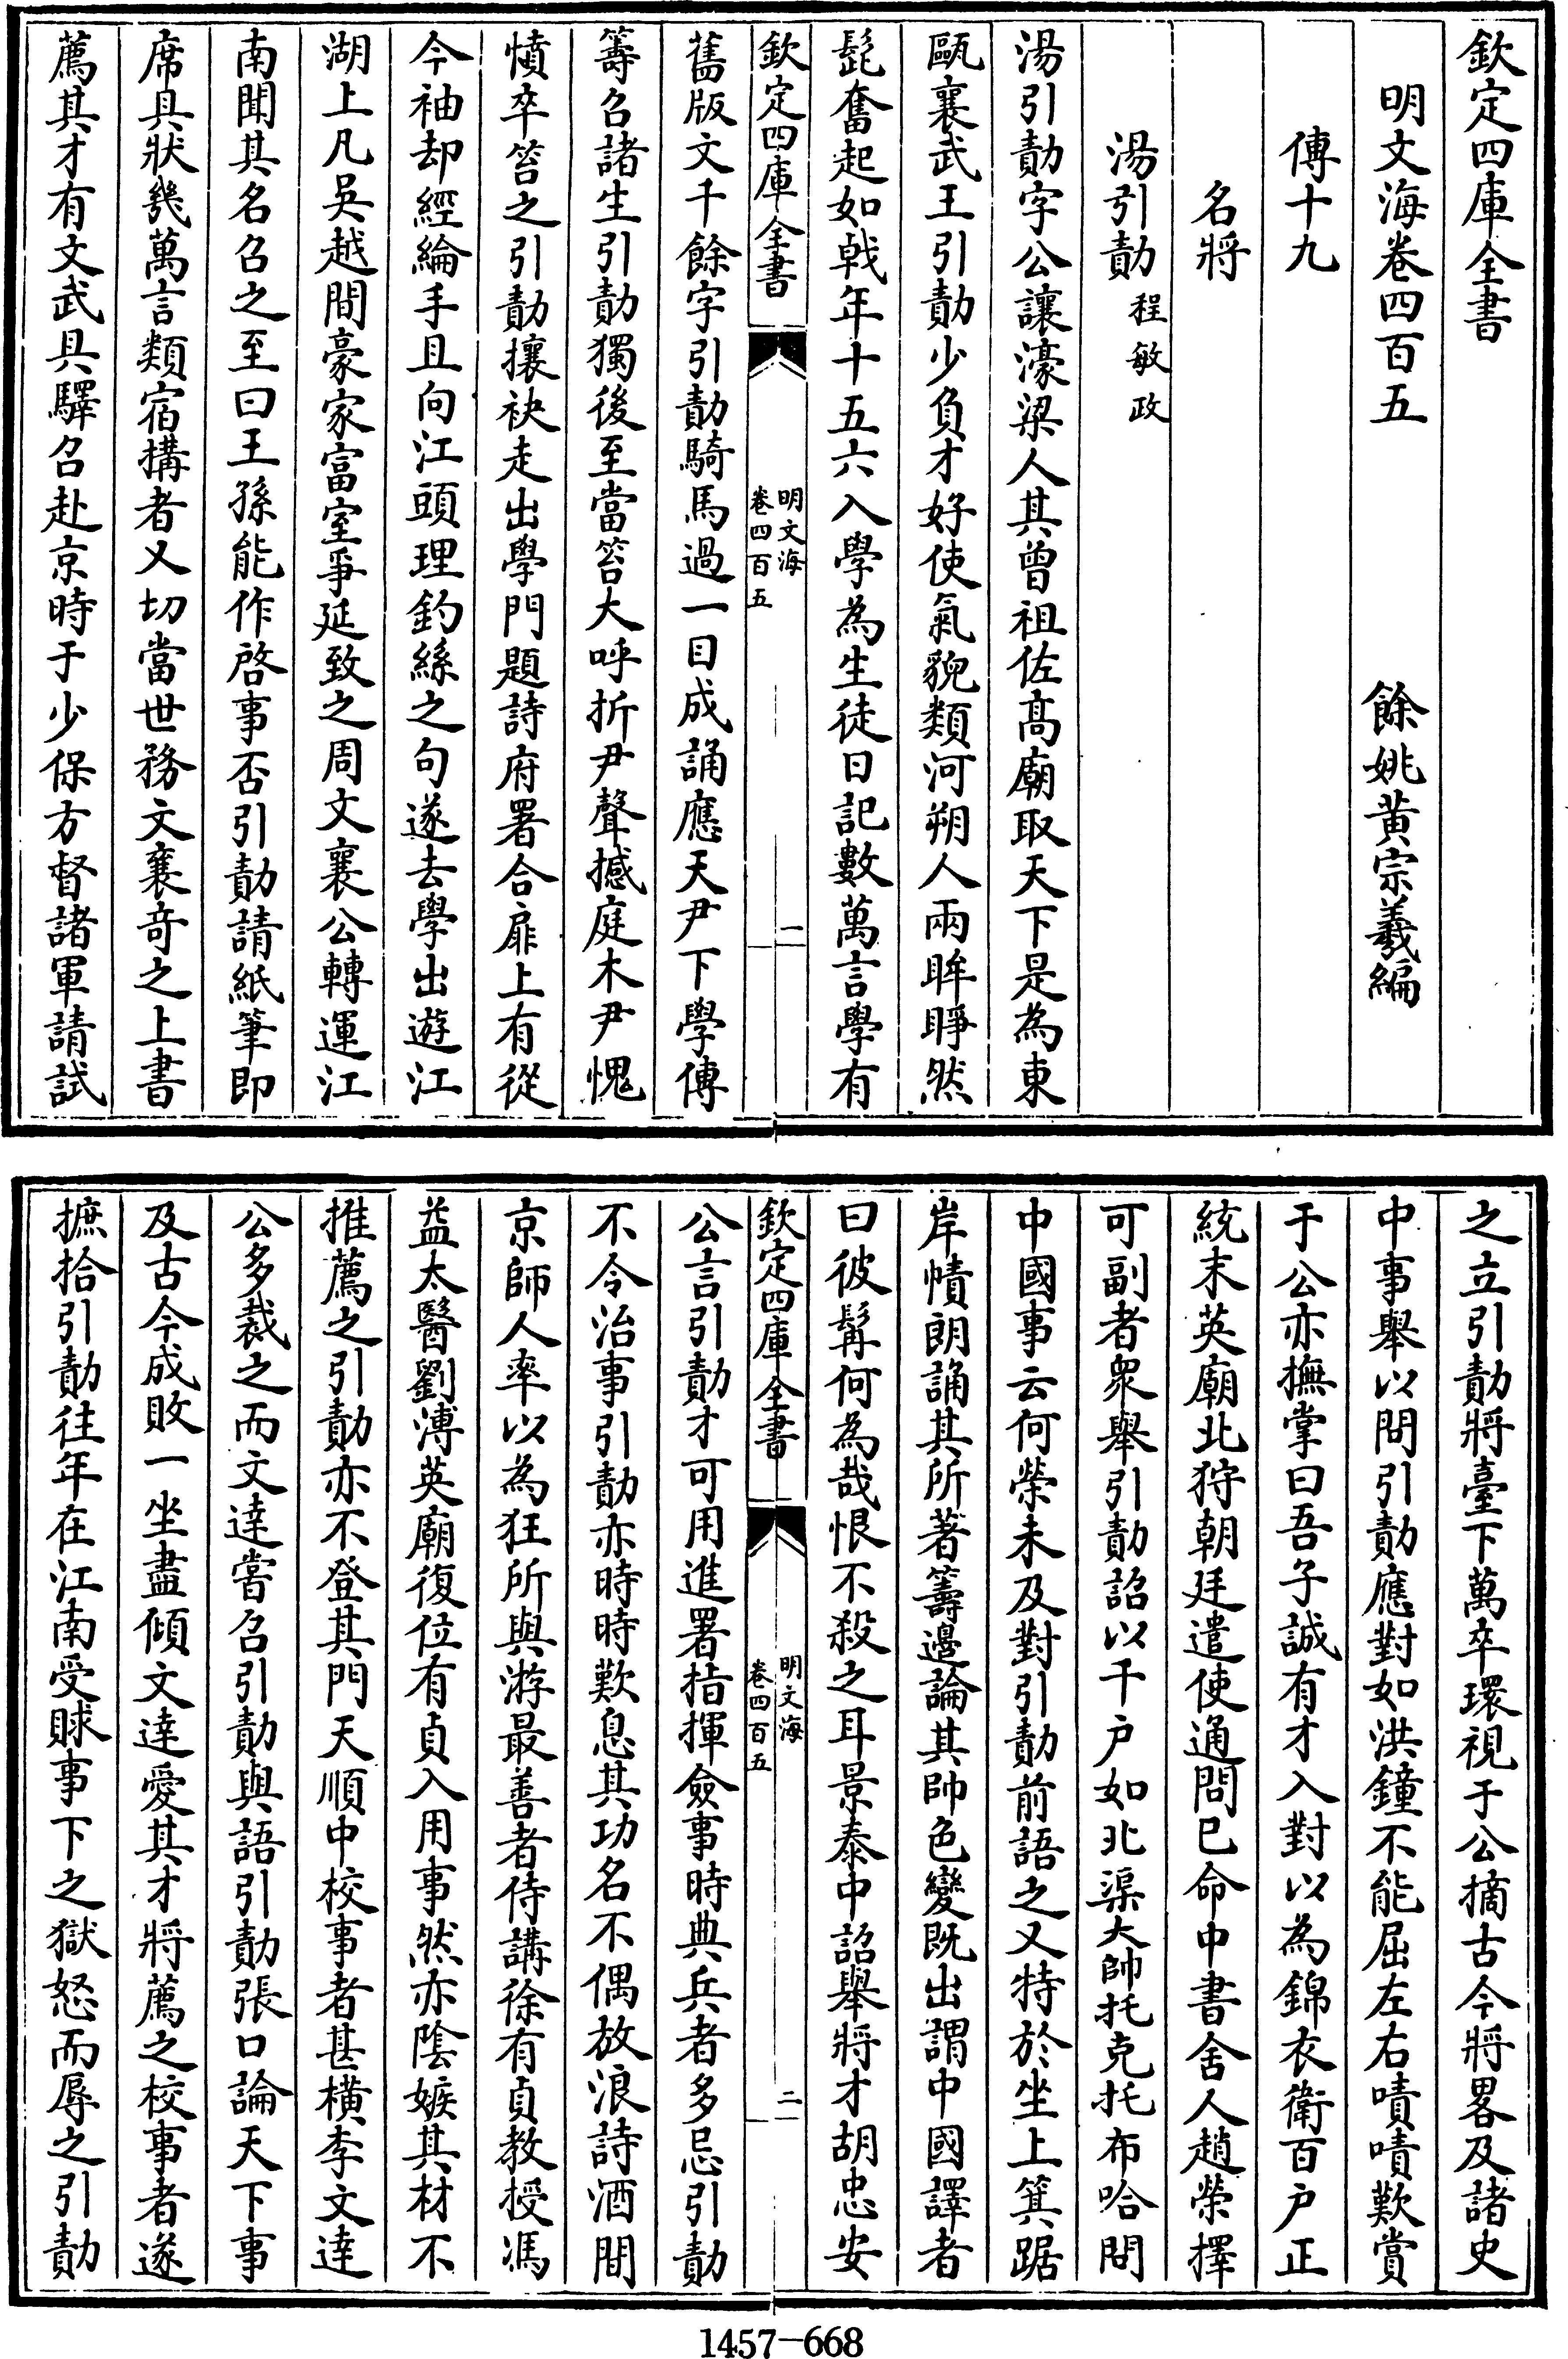 欽定四庫全書
明文海卷四百五
餘姚黃宗羲編
傳十九
名將
湯引勣程敏政
湯引勣字公讓濠梁人其曾祖佐髙廟取天下是為東
甌襄武王引勣少負才好使氣貌類河朔人兩眸睜然
髭奮起如㦸年十五六入學為生徒日記數萬言學有
欽定四庫全書
明文海
卷四百五
一
舊版文千餘字引勣騎馬過一目成誦應天尹下學傳
籌召諸生引勣獨後至當笞大呼折尹聲撼庭木尹愧
憤卒笞之引勣攘袂走出學門題詩府署合扉上有從
今袖却經綸手且向江頭理釣絲之句遂去學出遊江
湖上凡吳越間豪家富室爭延致之周文襄公轉運江
南聞其名召之至曰王孫能作啓事否引勣請紙筆即
席具狀幾萬言類宿搆者乂切當世務文襄竒之上書
薦其才有文武具驛召赴京時于少保方督諸軍請試
之立引勣將臺下萬卒環視于公摘古今將畧及諸史
中事舉以問引勣應對如洪鐘不能屈左右嘖嘖歎賞
于公亦撫掌曰吾子誠有才入對以為錦衣衛百户正
統末英廟北狩朝廷遣使通問已命中書舍人趙榮擇
可副者衆舉引勣詔以千户如北渠大帥托克托布哈問
中國事云何榮未及對引勣前語之又特於坐上箕踞
岸幘朗誦其所著籌邊論其帥色變既出謂中國譯者
曰彼髯何為哉恨不殺之耳景泰中詔舉將才胡忠安
欽定四庫全書
明文海
卷四百五
二
公言引勣才可用進署指揮僉事時典兵者多忌引勣
不令治事引勣亦時時歎息其功名不偶放浪詩酒間
京師人率以為狂所與游最善者侍講徐有貞教授馮
益太醫劉溥英廟復位有貞入用事然亦陰嫉其材不
推薦之引勣亦不登其門天順中校事者甚橫李文達
公多裁之而文達嘗召引勣與語引勣張口論天下事
及古今成敗一坐盡傾文達愛其才將薦之校事者遂
摭拾引勣往年在江南受賕事下之獄怒而辱之引勣
1457-668